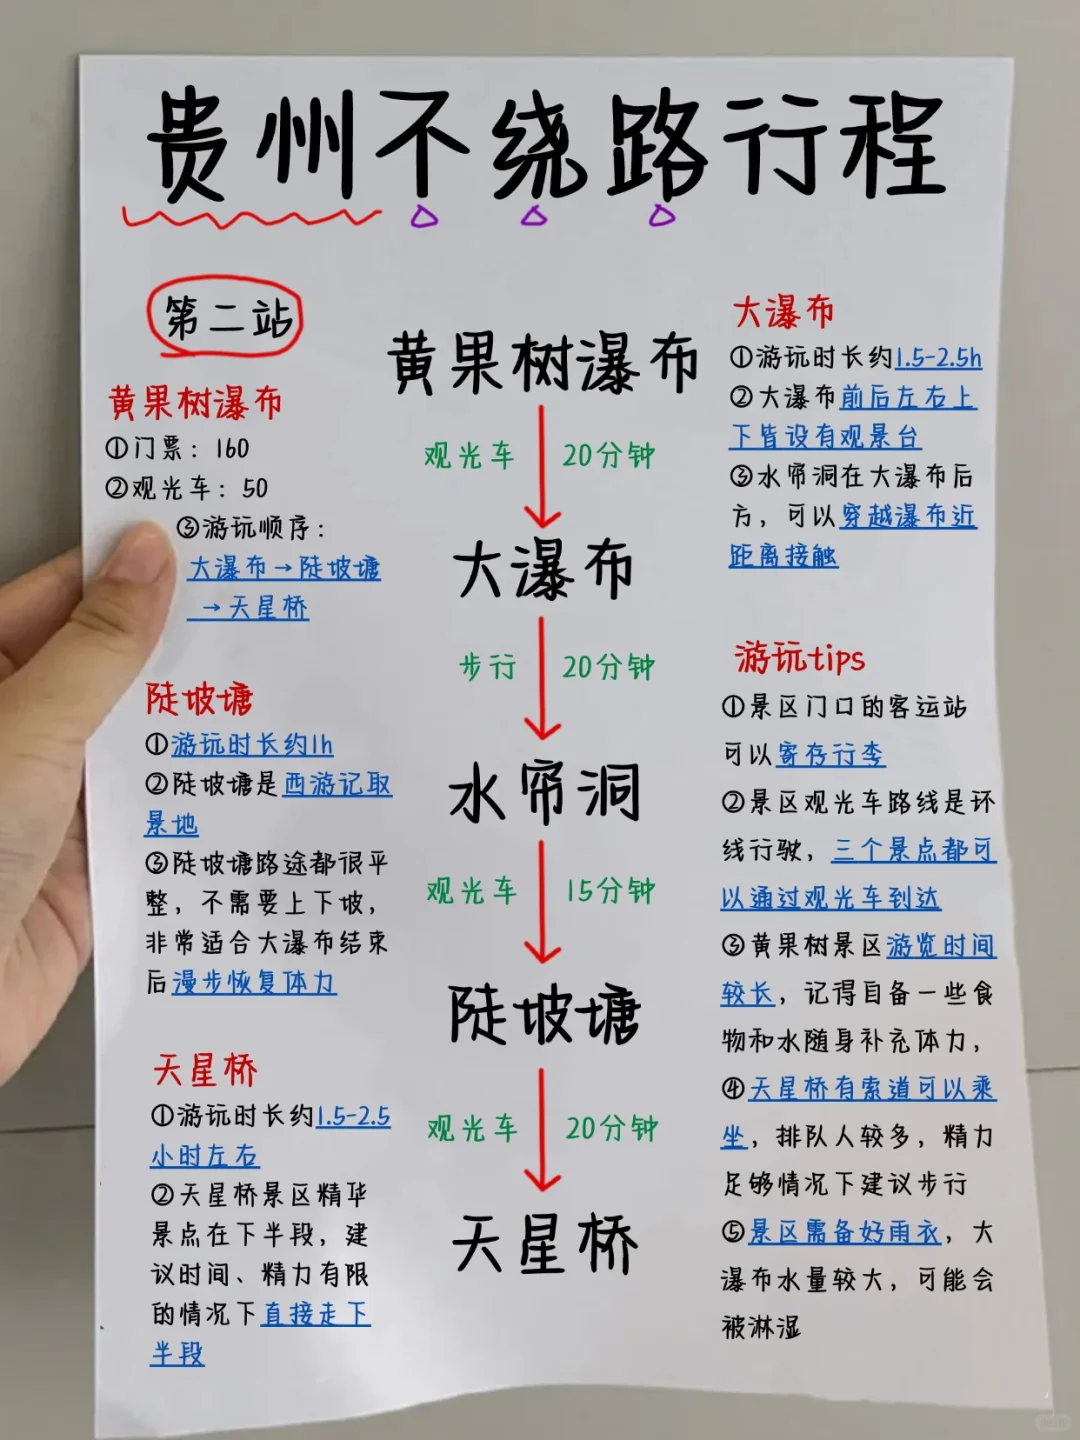 贵州不绕路行程
第二站
黄果树瀑布
①门票：160
②观光车：50
③游玩顺序：
大瀑布→陡坡塘
→天星桥
陡坡塘
①游玩时长约1h
②陡坡塘是西游记取
景地
③陡坡塘路途都很平
整，不需要上下坡，
非常适合大瀑布结束
后漫步恢复体力
天星桥
①游玩时长约1.5-2.5
小时左右
②天星桥景区精华
景点在下半段，建
议时间、精力有限
的情况下直接走下
半段
黄果树瀑布
观光车 20分钟
大瀑布
步行 20分钟
水帘洞
观光车 15分钟
陡坡塘
观光车 20分钟
天星桥
大瀑布
①游玩时长约1.5-2.5h
②大瀑布前后左右上
下皆设有观景台
③水帘洞在大瀑布后
方，可以穿越瀑布近
距离接触
游玩tips
①景区门口的客运站
可以寄存行李
②景区观光车路线是环
线行驶，三个景点都可
以通过观光车到达
③黄果树景区游览时间
较长，记得自备一些食
物和水随身补充体力，
④天星桥有索道可以乘
坐，排队人较多，精力
足够情况下建议步行
⑤景区需备好雨衣，大
瀑布水量较大，可能会
被淋湿